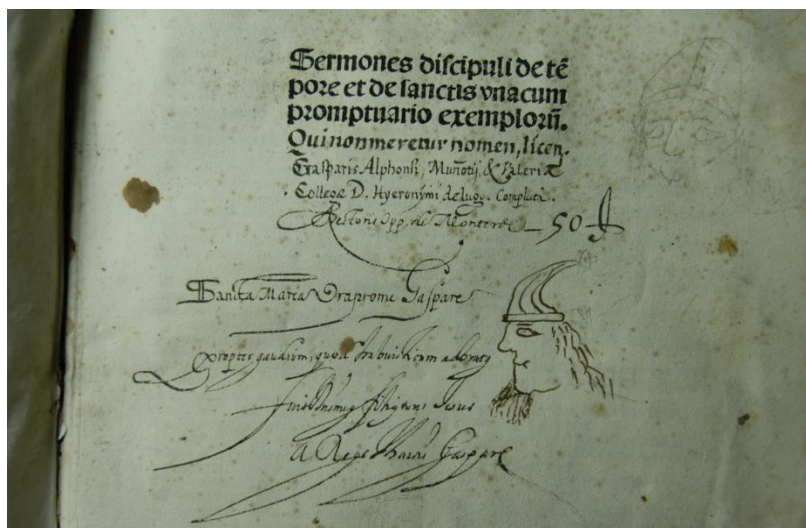 Sermones discipuli de tẽ
pore et de sanctis vnacum
promptuario exemplorũ.
Qui non meretur nomen, licen.
Gasparis Alphonsi, Muñotij, & Valeriæ
. Collegæ D. Hyeronymi de lugo. Compluti.
50
Sancta Maria Ora pro me Gaspare
Propter gaudium, quod habuisti cum
Jesus
a Rege Gaspare